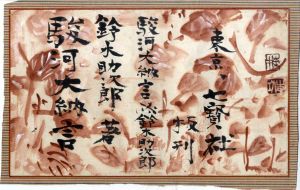 東京 七寶社
版刊
駿河大納言 鈴木助次郎
鈴木助次郎 著
駿河大納言